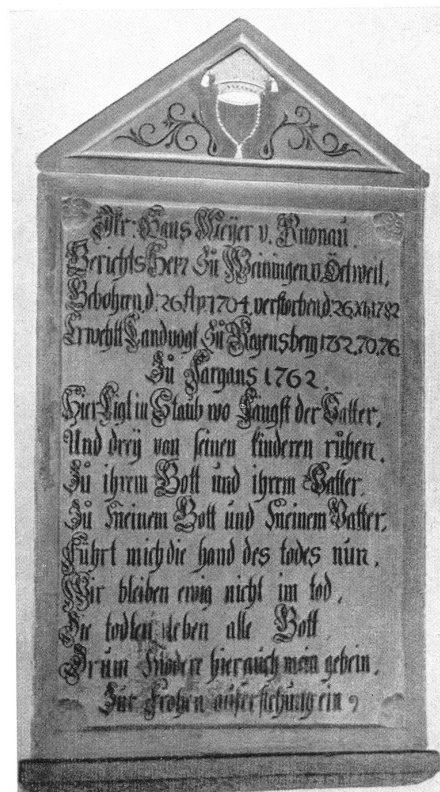 Jkr: Hans Meÿer v. Knonau.
Gerichts Herr Zu Weiningen u. Öetweil,
Gebohren d. 26. Ap. 1704. verstorben d. 26. XI. 1782
Erwehlt Landvogt Zu Regensberg 1752. 70. 76.
Zu Sargans 1762.
Hier Ligt in Staub wo Längst der Vatter,
Und dreÿ von seinen kinderen ruhen.
Zu ihrem Gott und ihrem Vatter.
Zu Meinem Gott und Meinem Vatter,
Führt mich die hand des todes nun.
Wir bleiben ewig nicht im tod,
Die todten leben alle Gott
Drum Modere hier auch mein gebein.
Zur Frohen auferstehung ein